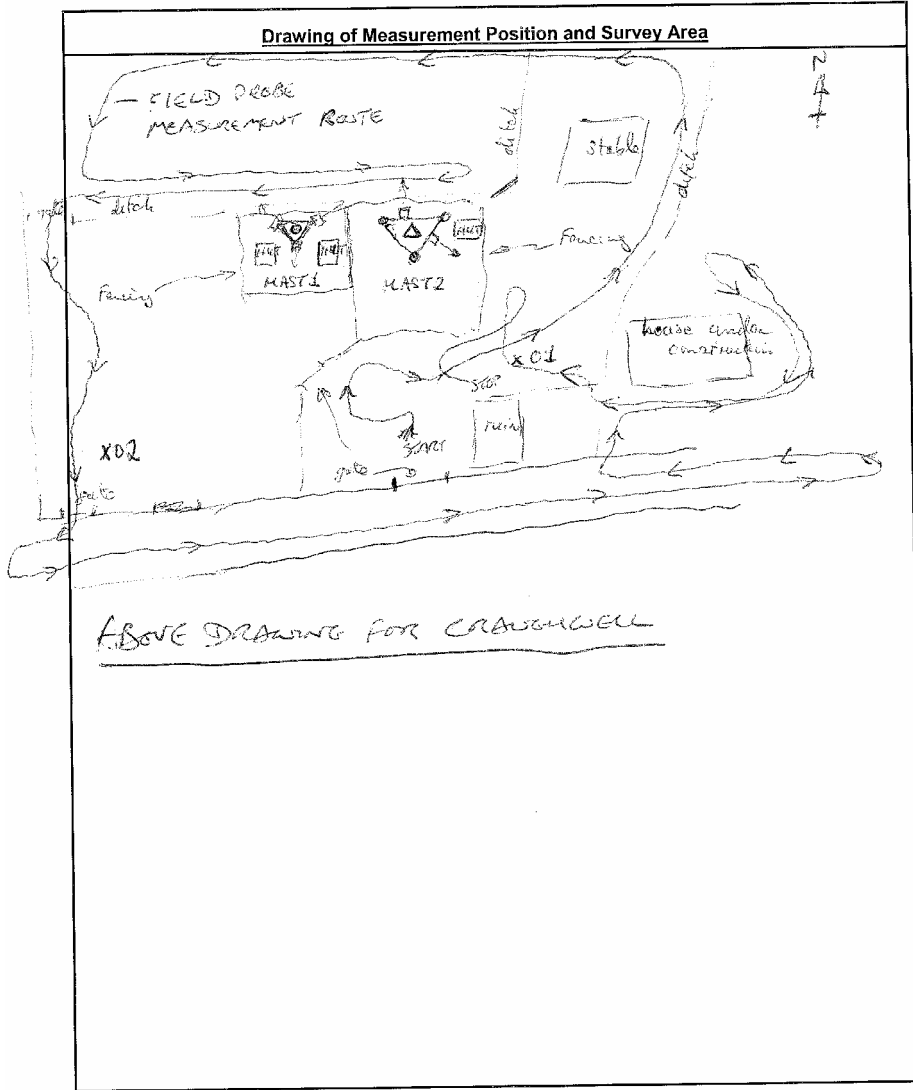 Drawing of Measurement Position and Survey Area
N
— FIELD PROBE
MEASUREMENT ROUTE
ditch
Stable
ditch
gate
ditch
HUT
HUT
HUT
Fencing
Fencing
MAST 1
MAST 2
house under
construction
X01
STOP
ruin
START
gate
X02
gate
ROAD
ABOVE DRAWING FOR CRAUGHWELL